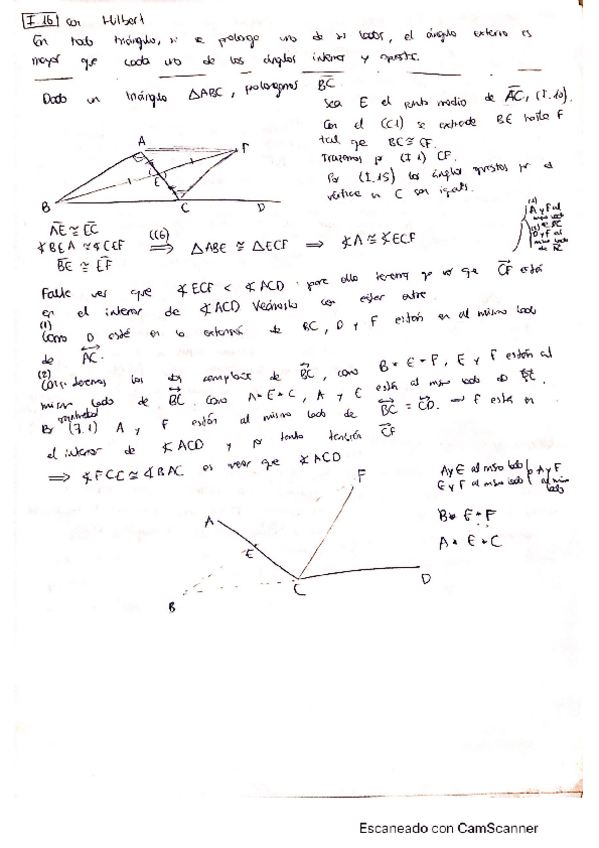 I 16 con Hilbert
En todo triángulo, si se prolonga uno de sus lados, el ángulo externo es
mayor que cada uno de los ángulos internos y opuestos.
Dado un triángulo △ABC, prolongamos BC
Sea E el punto medio de AC, (I.10).
Con el (C1) se extiende BE hasta F
tal que BC ≅ CF.
Trazamos por (I 1) CF.
Por (I.15) los ángulos opuestos por el
vértice en C son iguales.
A
F
E
B
C
D
AE ≅ EC
∢BEA ≅ ∢CEF
BE ≅ EF
(C6)
⟹ △ABE ≅ △ECF ⟹ ∢A ≅ ∢ECF
Falta ver que ∢ECF < ∢ACD para ello tenemos que ver que CF está
en el interior de ∢ACD Veámoslo con
(1)
Como D está en la extensión de BC, D y F están en el mismo lado
de AC.
(2)
de BC, como B * E * F, E y F están al
mismo lado de BC. Como A * E * C, A y E están al mismo lado de BC.
Por (7.1) A y F están al mismo lado de BC = CD. ⟹ F está en
el interior de ∢ACD y por tanto también CF
⟹ ∢FCE ≅ ∢BAC es menor que ∢ACD
A y E al mismo lado
E y F al mismo lado
A y F
al mismo
lado
B * E * F
A * E * C
A
F
E
B
C
D
Escaneado con CamScanner